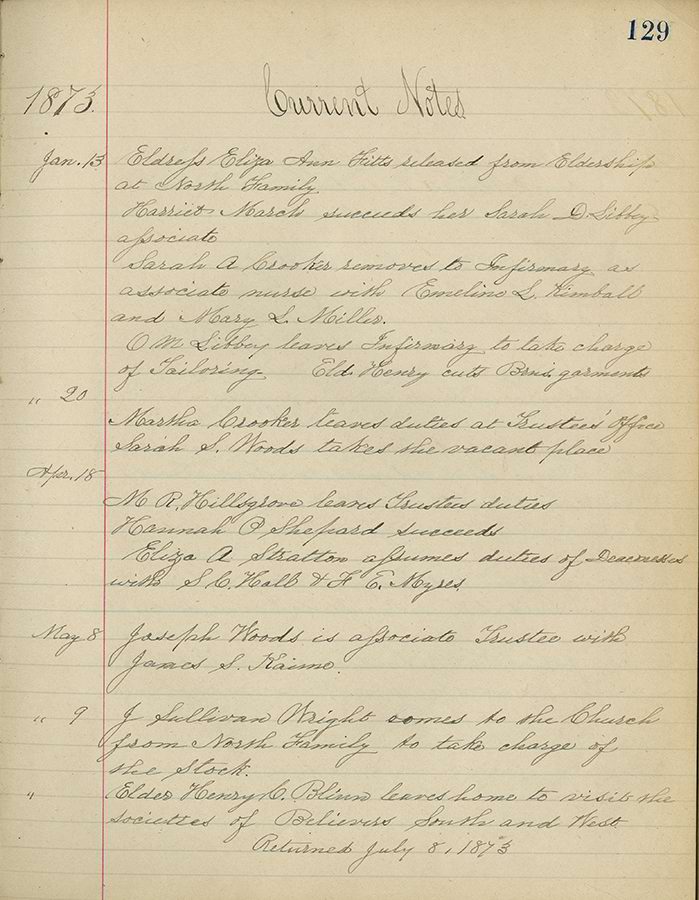 129
Current Notes
1873.
Jan. 13 Eldress Eliza Ann Fitts released from Eldership
at North Family
Harriet March succeeds her Sarah D. Libbey
associate
Sarah A Crooker removes to Infirmary as
associate nurse with Emeline L. Kimball
and Mary L. Miller.
O M Libbey leaves Infirmary to take charge
of Tailoring Eld. Henry cuts Brn's. garments
" 20
Martha Crooker leaves duties at Trustees' Office
Sarah S. Woods takes the vacant place
Apr. 18
M R. Hillsgrove leaves Trustees duties
Hannah P Shepard succeeds
Eliza A Stratton assumes duties of Deaconess
with S. C. Hall & F E. Myres.
May 8 Joseph Woods is associate Trustee with
James S. Kaime.
" 9 J Sullivan Wright comes to the Church
from North Family to take charge of
the Stock.
" Elder Henry C. Blinn leaves home to visit the
societies of Believers South and West.
Returned July 8, 1873